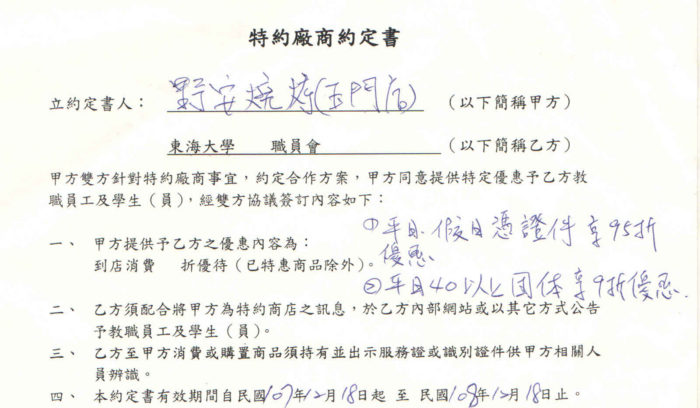 特約廠商約定書
立約定書人： 野安燒烤(玉門店) （以下簡稱甲方）
東海大學 職員會 （以下簡稱乙方）
甲方雙方針對特約廠商事宜，約定合作方案，甲方同意提供特定優惠予乙方教
職員工及學生（員），經雙方協議簽訂內容如下：
一、 甲方提供予乙方之優惠內容為：
到店消費 折優待（已特惠商品除外）。
①平日.假日憑證件享95折
優惠
②平日40以上团体享9折優惠.
二、 乙方須配合將甲方為特約商店之訊息，於乙方內部網站或以其它方式公告
予教職員工及學生（員）。
三、 乙方至甲方消費或購置商品須持有並出示服務證或識別證件供甲方相關人
員辨識。
四、 本約定書有效期間自民國107年12月18日起 至 民國108年12月18日止。